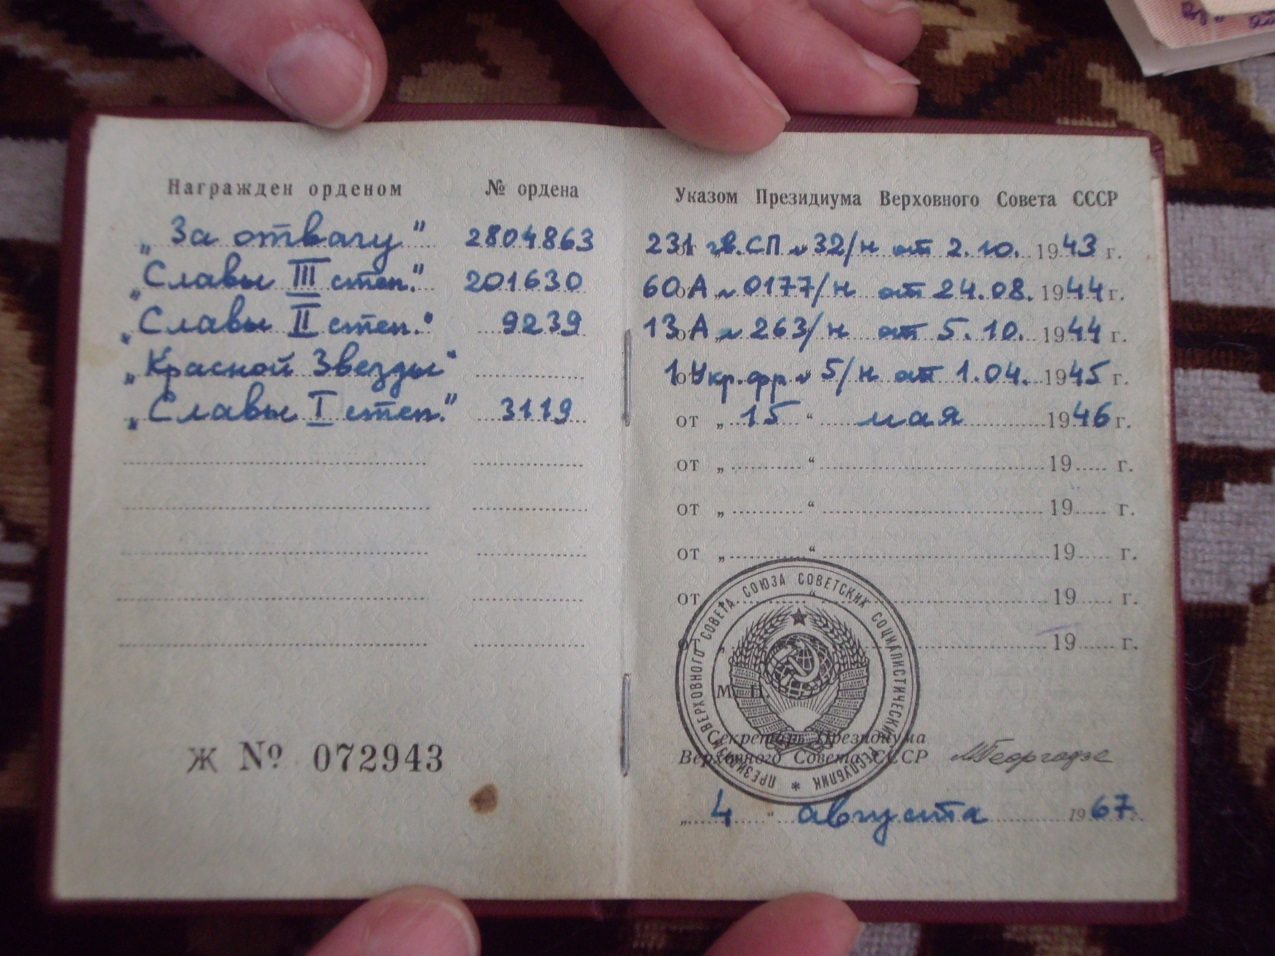 Награжден орденом № ордена
„За отвагу" 2804863
„Славы III степ." 201630
„Славы II степ." 9239
„Красной Звезды"
„Славы I степ." 3119
Ж № 072943
Указом Президиума Верховного Совета СССР
231 гв.СП № 32/н от 2.10. 1943 г.
60А № 0177/н от 24.08. 1944 г.
13А № 263/н от 5.10. 1944 г.
1 Укр.фр. № 5/н от 1.04. 1945 г.
от „ 15 “ мая 1946 г.
от „ “ 19 г.
от „ “ 19 г.
от „ “ 19 г.
от „ “ 19 г.
от „ 19 г.
ПРЕЗИДИУМ ВЕРХОВНОГО СОВЕТА СОЮЗА СОВЕТСКИХ СОЦИАЛИСТИЧЕСКИХ РЕСПУБЛИК
М. П.
Секретарь Президиума
Верховного Совета СССР МГеоргадзе
„ 4 “ августа 1967 г.